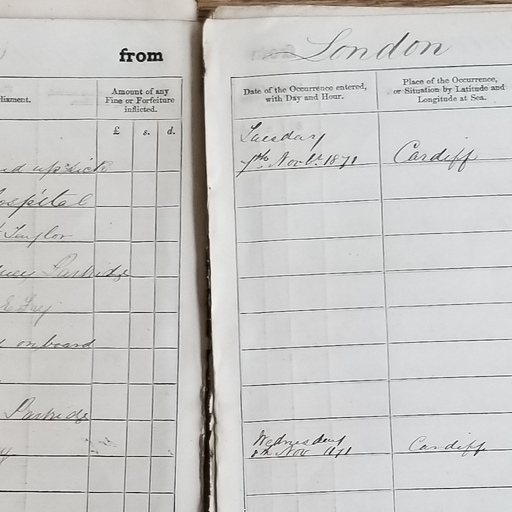 from
liament.
Amount of any
Fine or Forfeiture
inflicted.
£ s. d.
up sick
ospital
Taylor
Partridge
Day
onboard
Partridge
London
Date of the Occurrence entered,
with Day and Hour.
Place of the Occurrence,
or Situation by Latitude and
Longitude at Sea.
Tuesday
7th Novbr 1871 Cardiff
Wednesday
8th Nov 1871 Cardiff